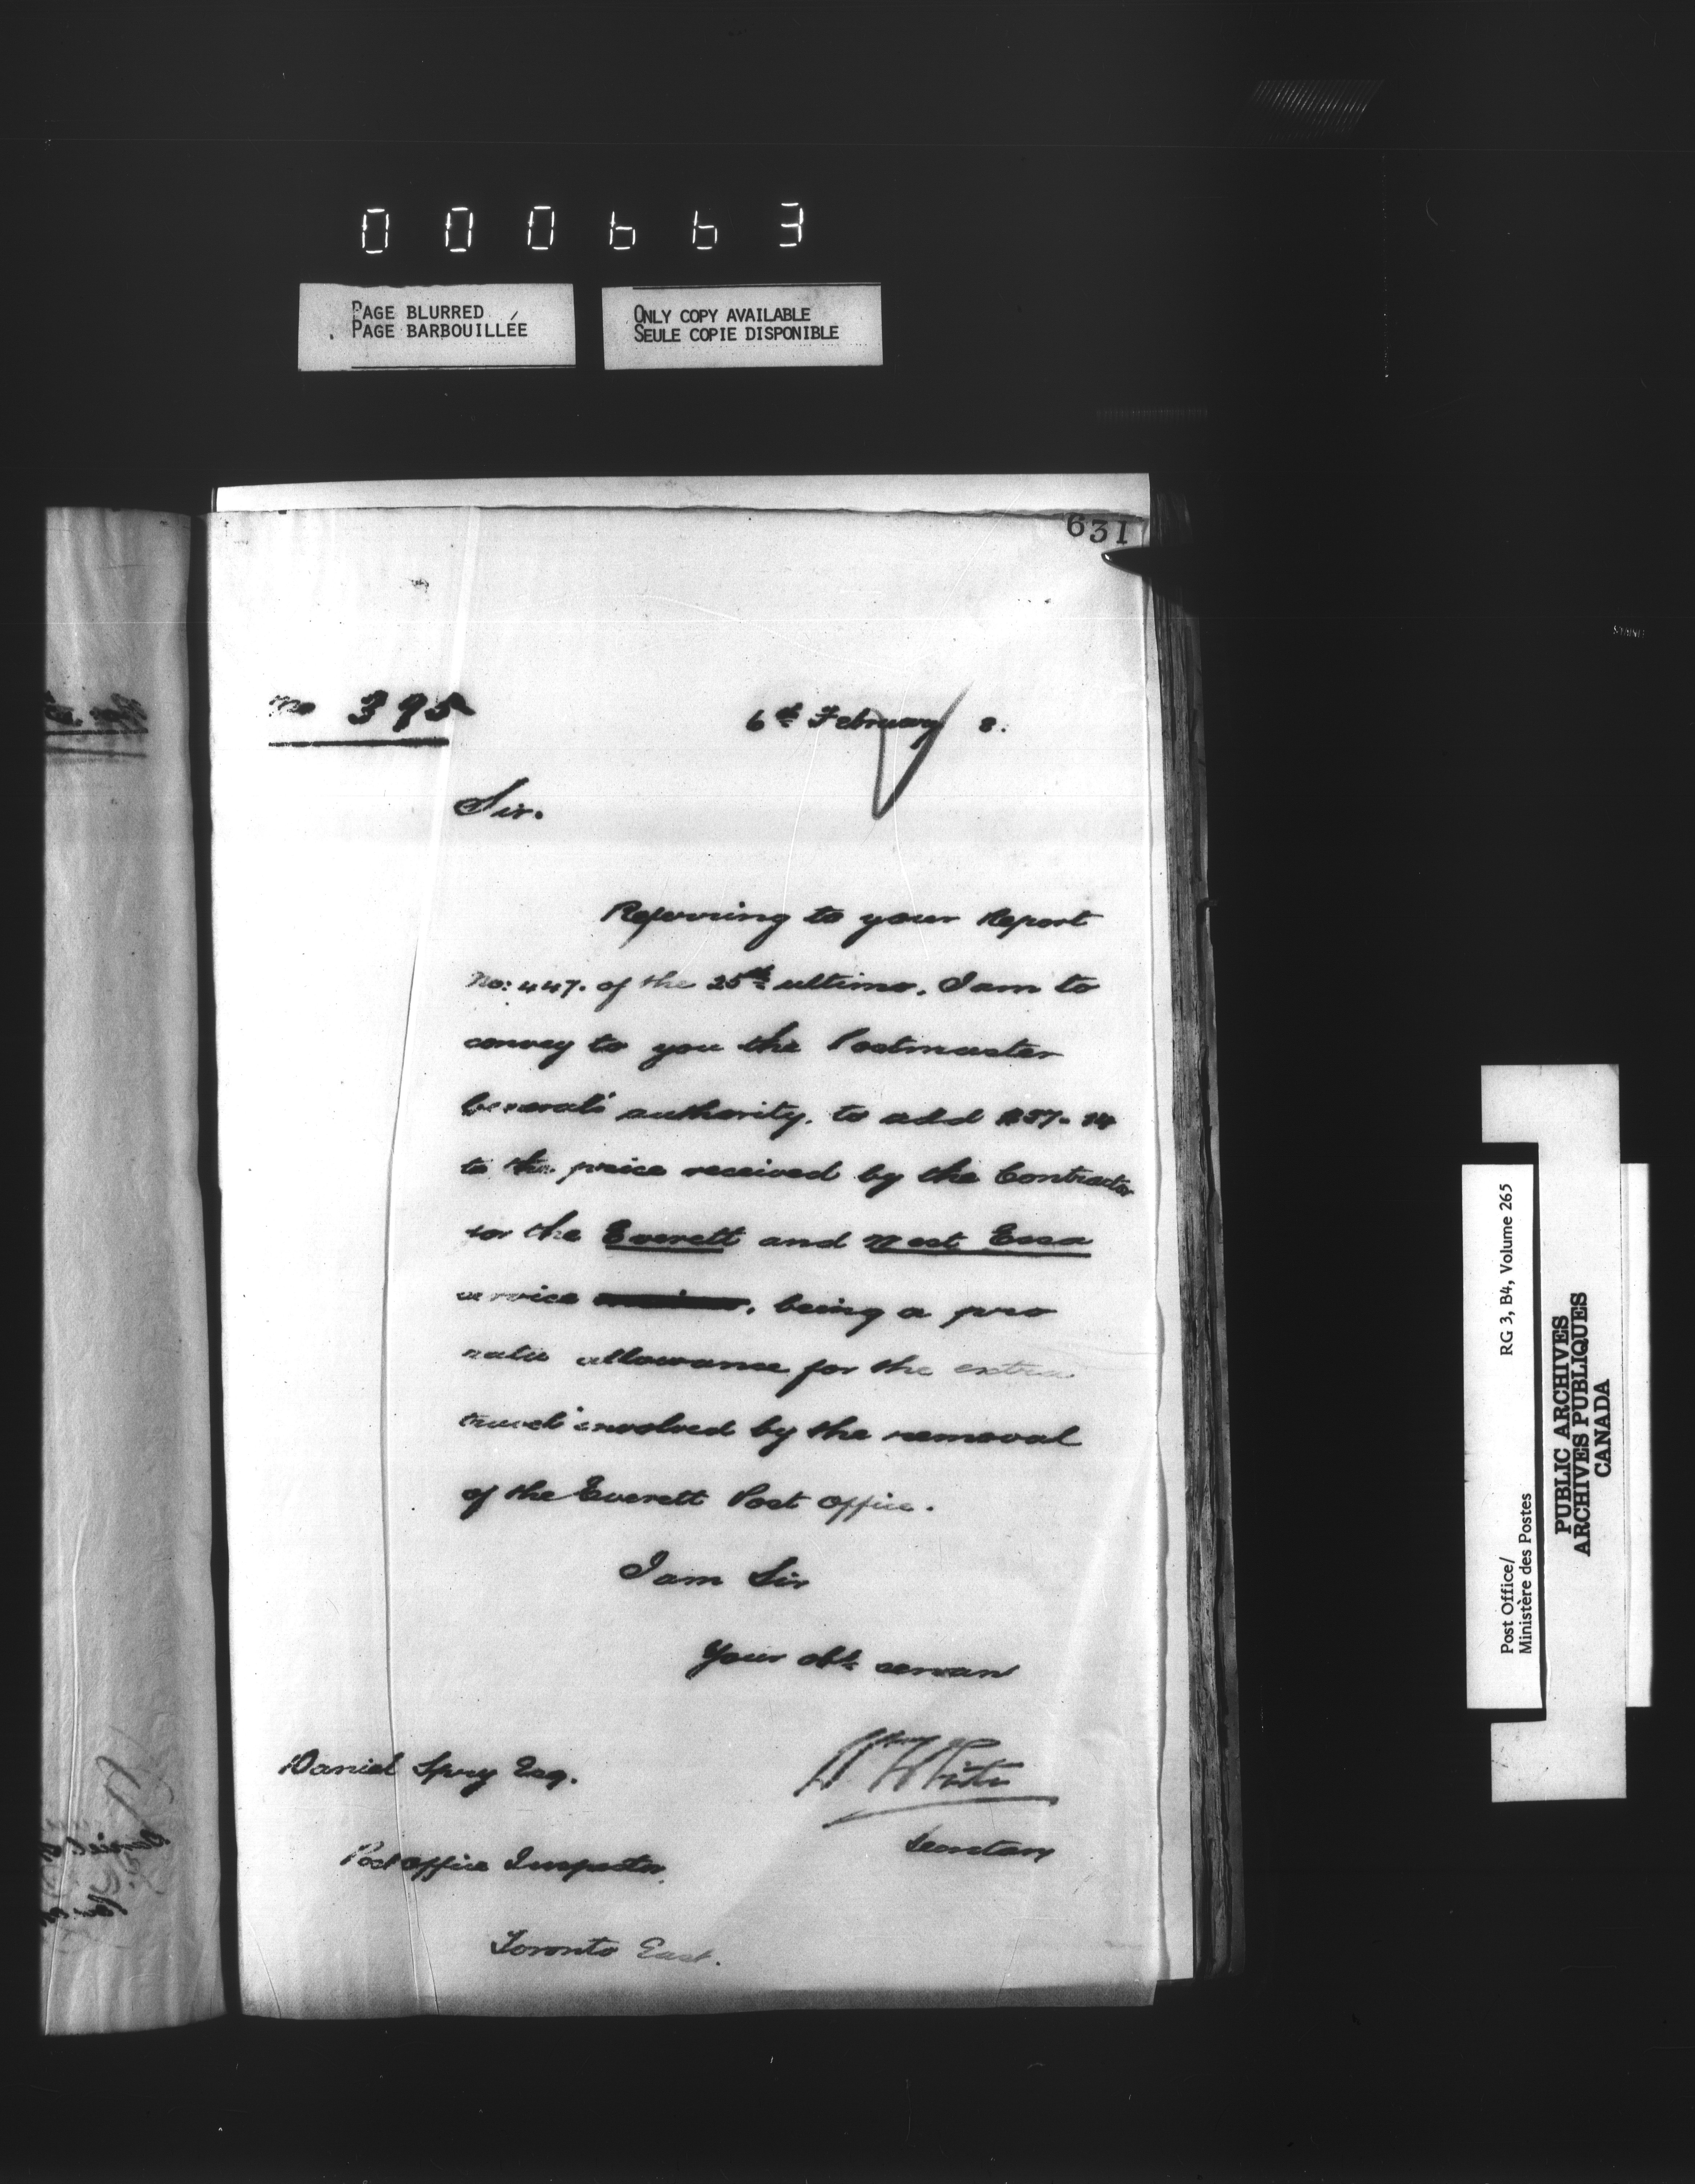 000663
PAGE BLURRED
PAGE BARBOUILLÉE
ONLY COPY AVAILABLE
SEULE COPIE DISPONIBLE
631
No 395
6th February 8.
Sir.
Referring to your Report
No: 447. of the 25th ultimo. I am to
convey to you the Postmaster
General's authority. to add $57.14
to the price received by the Contractor
for the Everett and West Essa
service being a pro
rata allowance for the extra
travel involved by the removal
of the Everett Post Office.
I am Sir
Your obt servan
Daniel Spry Esq.
White
Secretary
Post Office Inspector.
Toronto East.
Post Office/ RG 3, B4, Volume 265
Ministère des Postes
PUBLIC ARCHIVES
ARCHIVES PUBLIQUES
CANADA